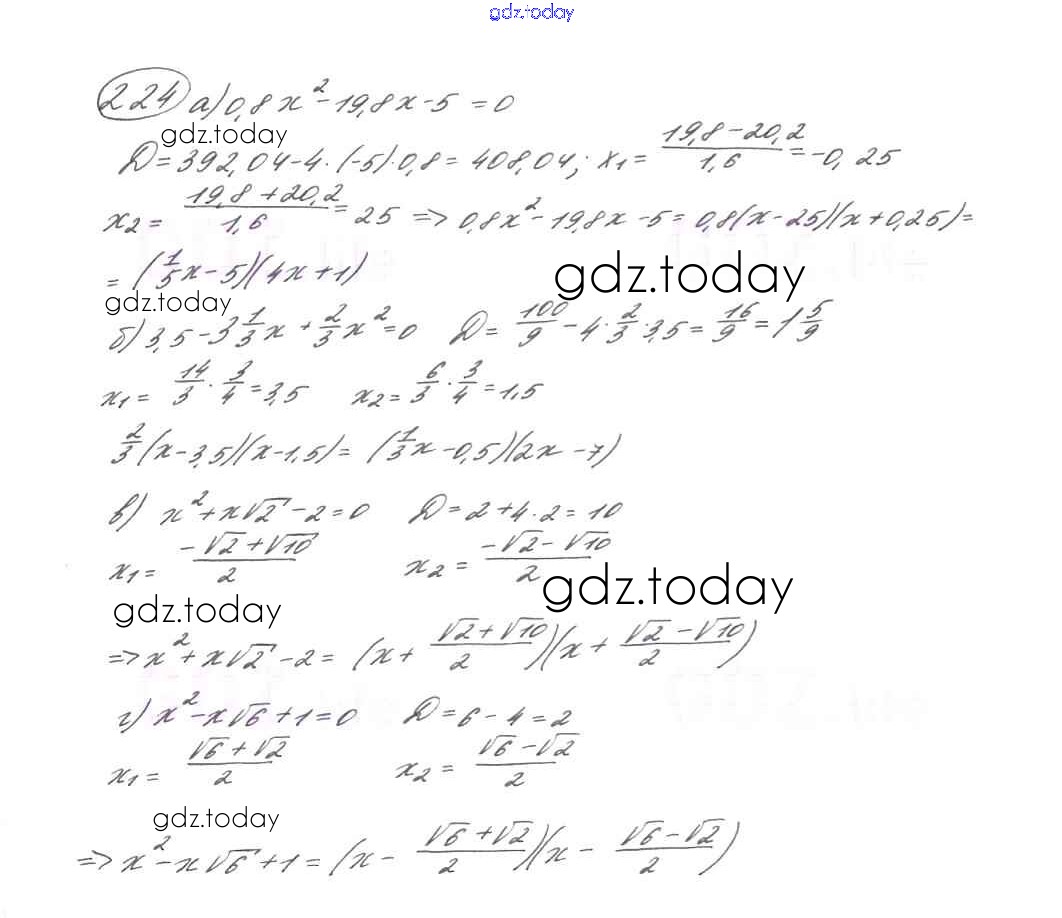 gdz.today
224 а) 0,8x² - 19,8x - 5 = 0
gdz.today
D = 392,04 - 4 · (-5) · 0,8 = 408,04; x₁ = (19,8 - 20,2)/1,6 = -0,25
x₂ = (19,8 + 20,2)/1,6 = 25 => 0,8x² - 19,8x - 5 = 0,8(x - 25)(x + 0,25) =
= (1/5x - 5)(4x + 1)
gdz.today
gdz.today
б) 3,5 - 3 1/3x + 2/3x² = 0 D = 100/9 - 4 · 2/3 · 3,5 = 16/9 = 1 5/9
x₁ = 14/3 · 3/4 = 3,5 x₂ = 6/3 · 3/4 = 1,5
2/3(x - 3,5)(x - 1,5) = (1/3x - 0,5)(2x - 7)
в) x² + x√2 - 2 = 0 D = 2 + 4 · 2 = 10
x₁ = (-√2 + √10)/2 x₂ = (-√2 - √10)/2
gdz.today
gdz.today
=> x² + x√2 - 2 = (x + (√2 + √10)/2)(x + (√2 - √10)/2)
г) x² - x√6 + 1 = 0 D = 6 - 4 = 2
x₁ = (√6 + √2)/2 x₂ = (√6 - √2)/2
gdz.today
=> x² - x√6 + 1 = (x - (√6 + √2)/2)(x - (√6 - √2)/2)